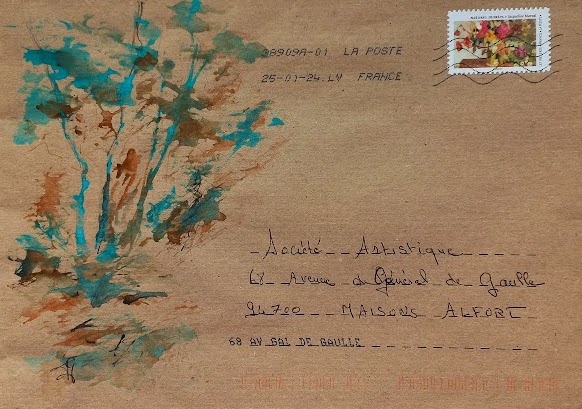 38909A-01 LA POSTE
25-01-24.LY FRANCE
Société Artistique
68 Avenue du Général de Gaulle
94700 MAISONS ALFORT
68 AV GAL DE GAULLE